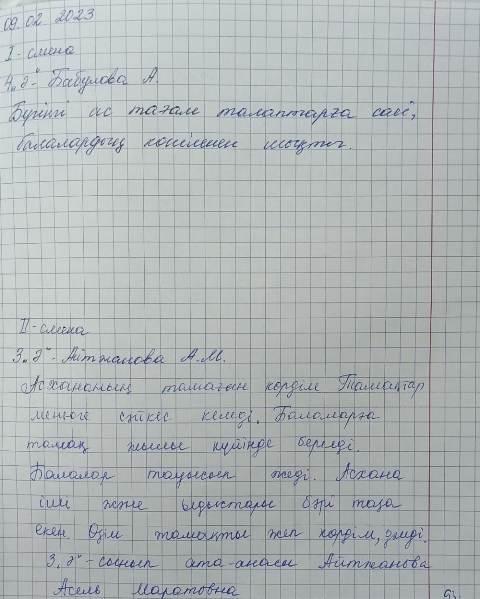 09.02 2023
I-смена
4 „ә" - Бабулова А.
Бүгінгі ас тағам талаптарға сай,
балалардың көңілінен шықты.
II-смена
3 „ә" - Айтжанова А.М.
Асхананың тамағын көрдім Тамақтар
менюге сәйкес келеді. Балаларға
тамақ жылы күйінде беріледі.
Балалар тауысып жеді. Асхана
іші және ыдыстары бәрі таза
екен. Өзім тамақты жеп көрдім, дәмді.
3 „ә" - сынып ата-анасы Айтжанова
Асель Маратовна